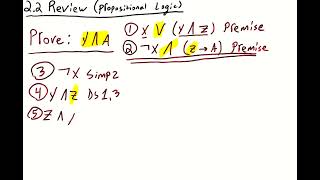 2.2 Review (Propositional Logic)
Prove: Y ∧ A
① X V (Y ∧ Z) Premise
② ¬X ∧ (Z → A) Premise
③ ¬X Simp 2
④ Y ∧ Z DS 1, 3
⑤ Z ∧